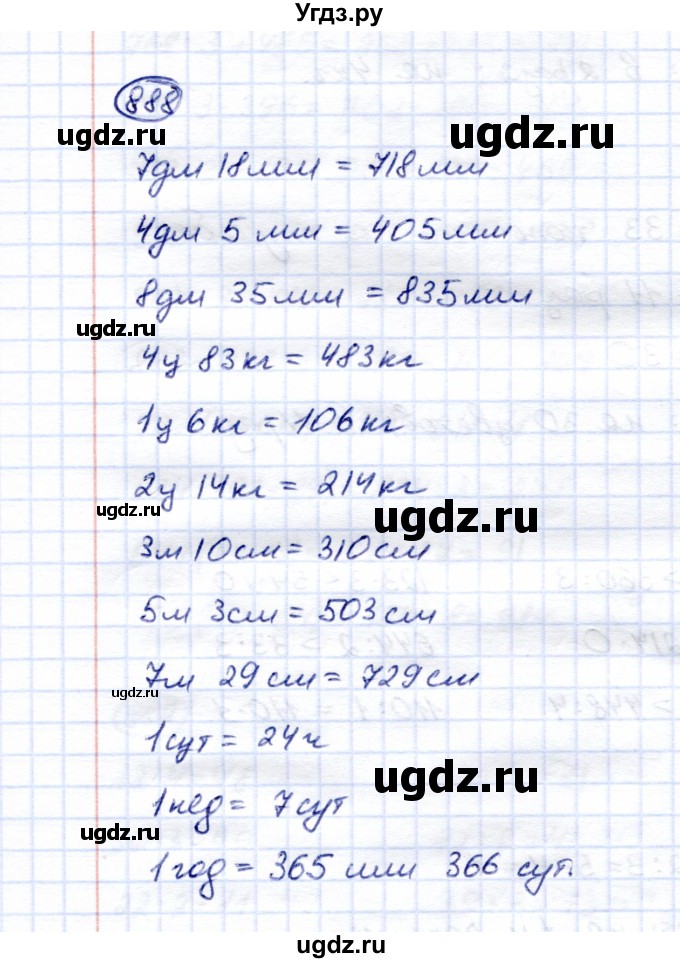 Угдз.ру
888
ugdz.ru
ugdz.ru
7дм 18мм = 718мм
4дм 5 мм = 405мм
8дм 35мм = 835мм
ugdz.ru
4ц 83кг = 483кг
1ц 6кг = 106кг
2ц 14кг = 214кг
ugdz.ru
ugdz.ru
3м 10см = 310см
5м 3см = 503см
7м 29см = 729см
ugdz.ru
1сут = 24ч
ugdz.ru
1нед = 7сут
ugdz.ru
1год = 365 или 366 сут.
ugdz.ru